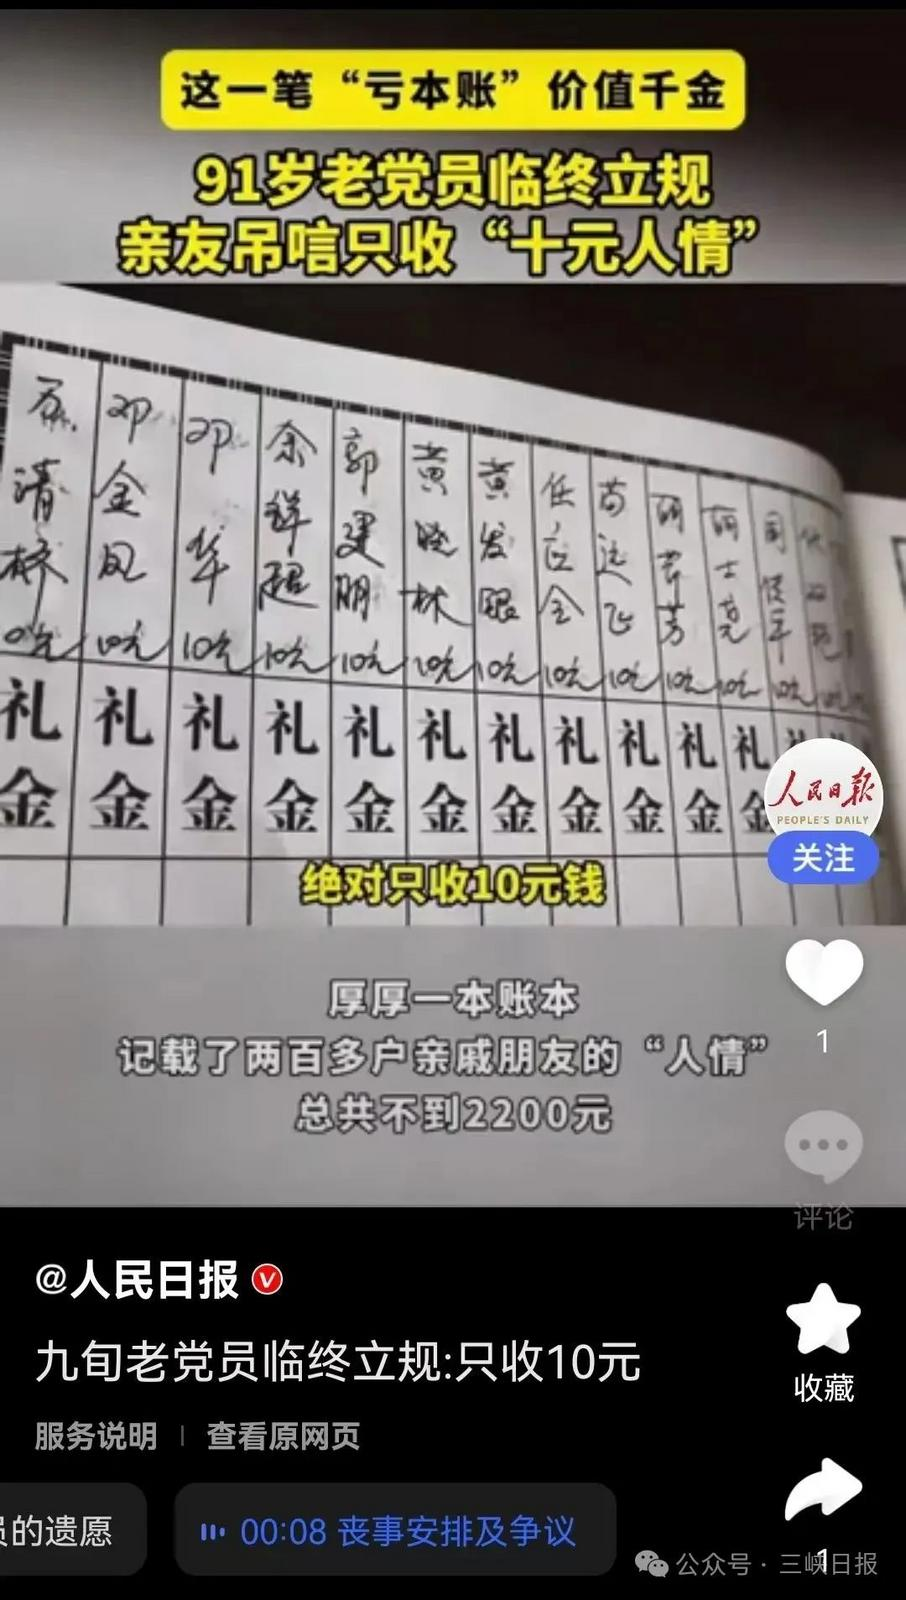 这一笔“亏本账”价值千金
91岁老党员临终立规
亲友吊唁只收“十元人情”
邓金凤
10元
邓华
10元
余祥超
10元
郭建明
10元
黄晓林
10元
黄发银
10元
10元
苟远飞
10元
10元
10元
10元
礼金
礼金
礼金
礼金
礼金
礼金
礼金
礼金
礼金
礼金
礼金
人民日报
PEOPLE'S DAILY
关注
绝对只收10元钱
厚厚一本账本
记载了两百多户亲戚朋友的“人情”
总共不到2200元
1
评论
@人民日报
九旬老党员临终立规:只收10元
收藏
服务说明 | 查看原网页
员的遗愿
00:08 丧事安排及争议
1
公众号·三峡日报